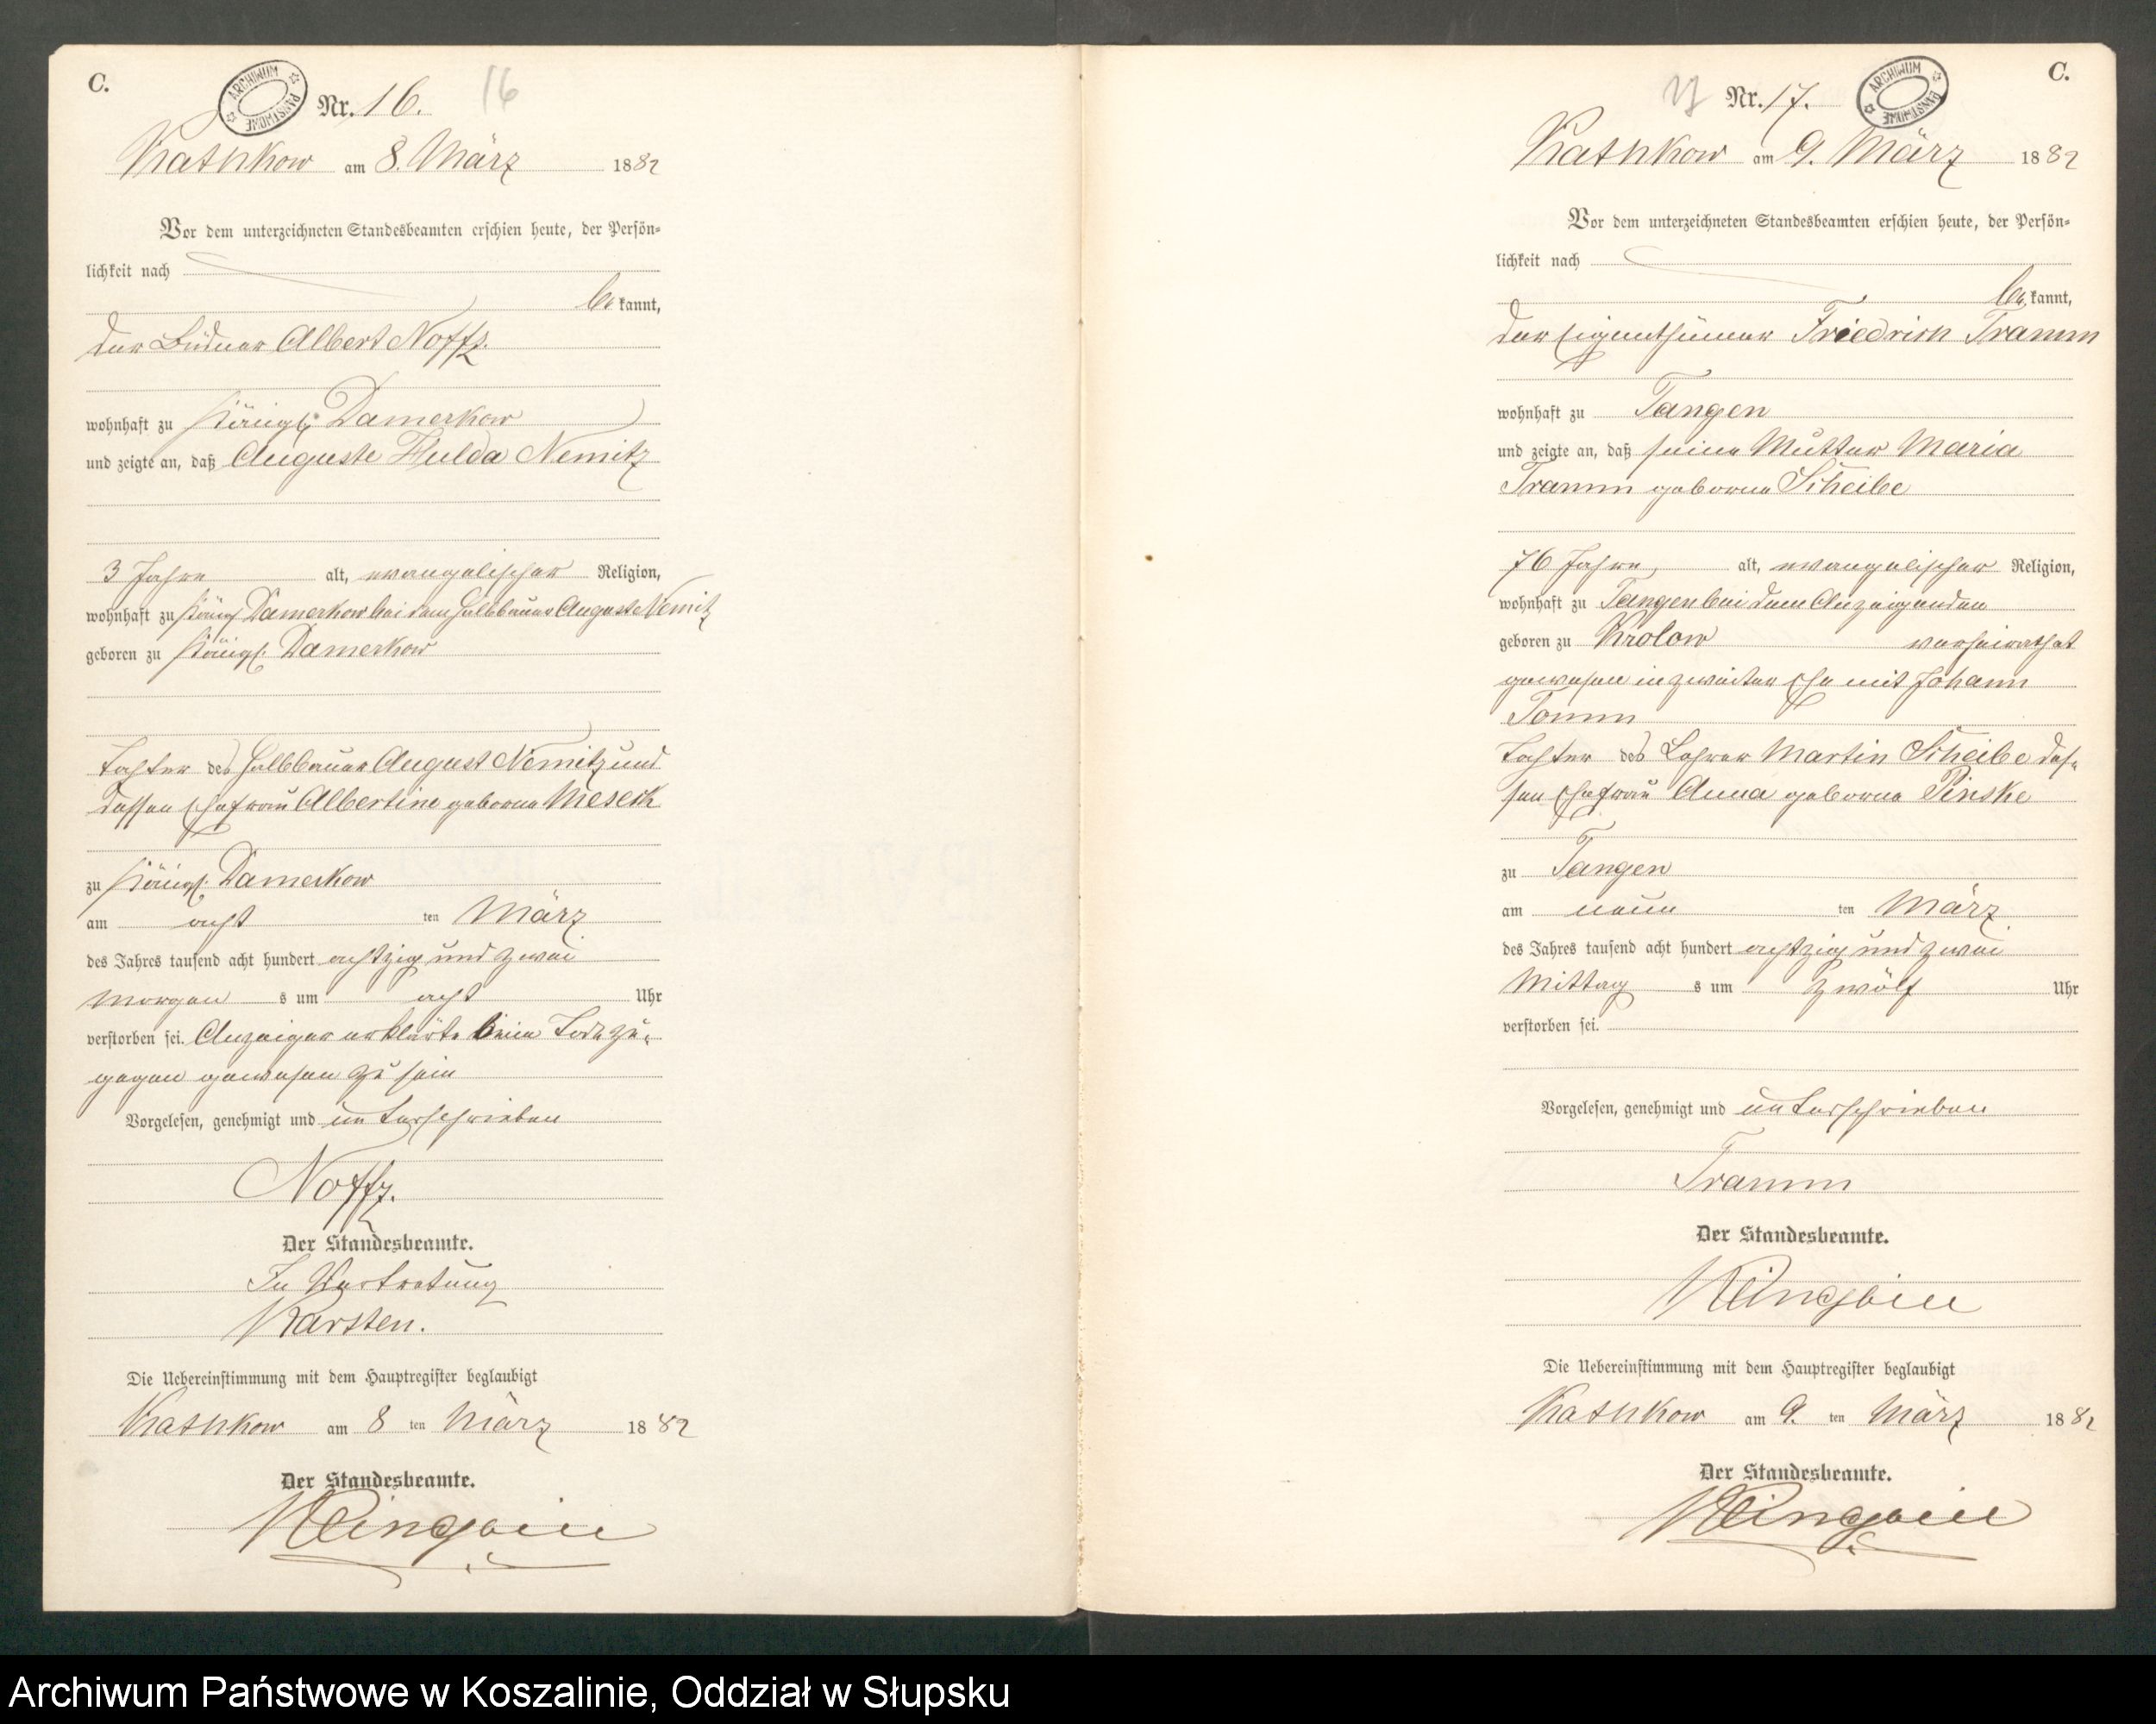 C.
ARCHIWUM PAŃSTWOWE
Nr. 16.
16
Kathkow am 8. März 1882
Vor dem unterzeichneten Standesbeamten erschien heute, der Persön-
lichkeit nach
be kannt,
der Büdner Albert Noffz.
wohnhaft zu Königl. Damerkow
und zeigte an, daß Auguste Hulda Nemitz
3 Jahre alt, evangelischer Religion,
wohnhaft zu Königl Damerkow bei dem Halbbauer August Nemitz
geboren zu Königl. Damerkow
Tochter des Halbbauer August Nemitz und
dessen Ehefrau Albertine geborne Meseck
zu Königl. Damerkow
am acht ten März
des Jahres tausend acht hundert achtzig und zwei
Morgen s um acht Uhr
verstorben sei. Anzeiger erklärte beim Tode zu-
gegen gewesen zu sein
Vorgelesen, genehmigt und unterschrieben
Noffz.
Der Standesbeamte.
In Vertretung
Karsten.
Die Uebereinstimmung mit dem Hauptregister beglaubigt
Kathkow am 8 ten März 1882
Der Standesbeamte.
C.
ARCHIWUM PAŃSTWOWE
17
Nr. 17.
Kathkow am 9. März 1882
Vor dem unterzeichneten Standesbeamten erschien heute, der Persön-
lichkeit nach
be kannt,
der Eigenthümer Friedrich Tramm
wohnhaft zu Tangen
und zeigte an, daß seine Mutter Maria
Tramm geborne Scheibe
76 Jahre, alt, evangelischer Religion,
wohnhaft zu Tangen bei dem Anzeigenden
geboren zu Krolow verheirathet
gewesen in zweiter Ehe mit Johann
Tomm
Tochter des Lehrer Martin Scheibe des-
sen Ehefrau Anna geborne Pinske
zu Tangen
am neun ten März
des Jahres tausend acht hundert achtzig und zwei
Mittag s um zwölf Uhr
verstorben sei.
Vorgelesen, genehmigt und unterschrieben
Tramm
Der Standesbeamte.
Die Uebereinstimmung mit dem Hauptregister beglaubigt
Kathkow am 9. ten März 1882
Der Standesbeamte.
Archiwum Państwowe w Koszalinie, Oddział w Słupsku